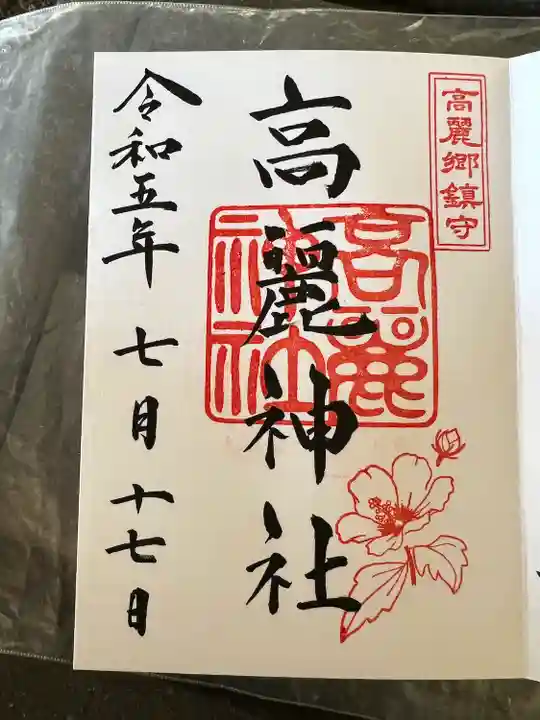 高麗郷鎮守
高麗神社
高麗神社
令和五年七月十七日